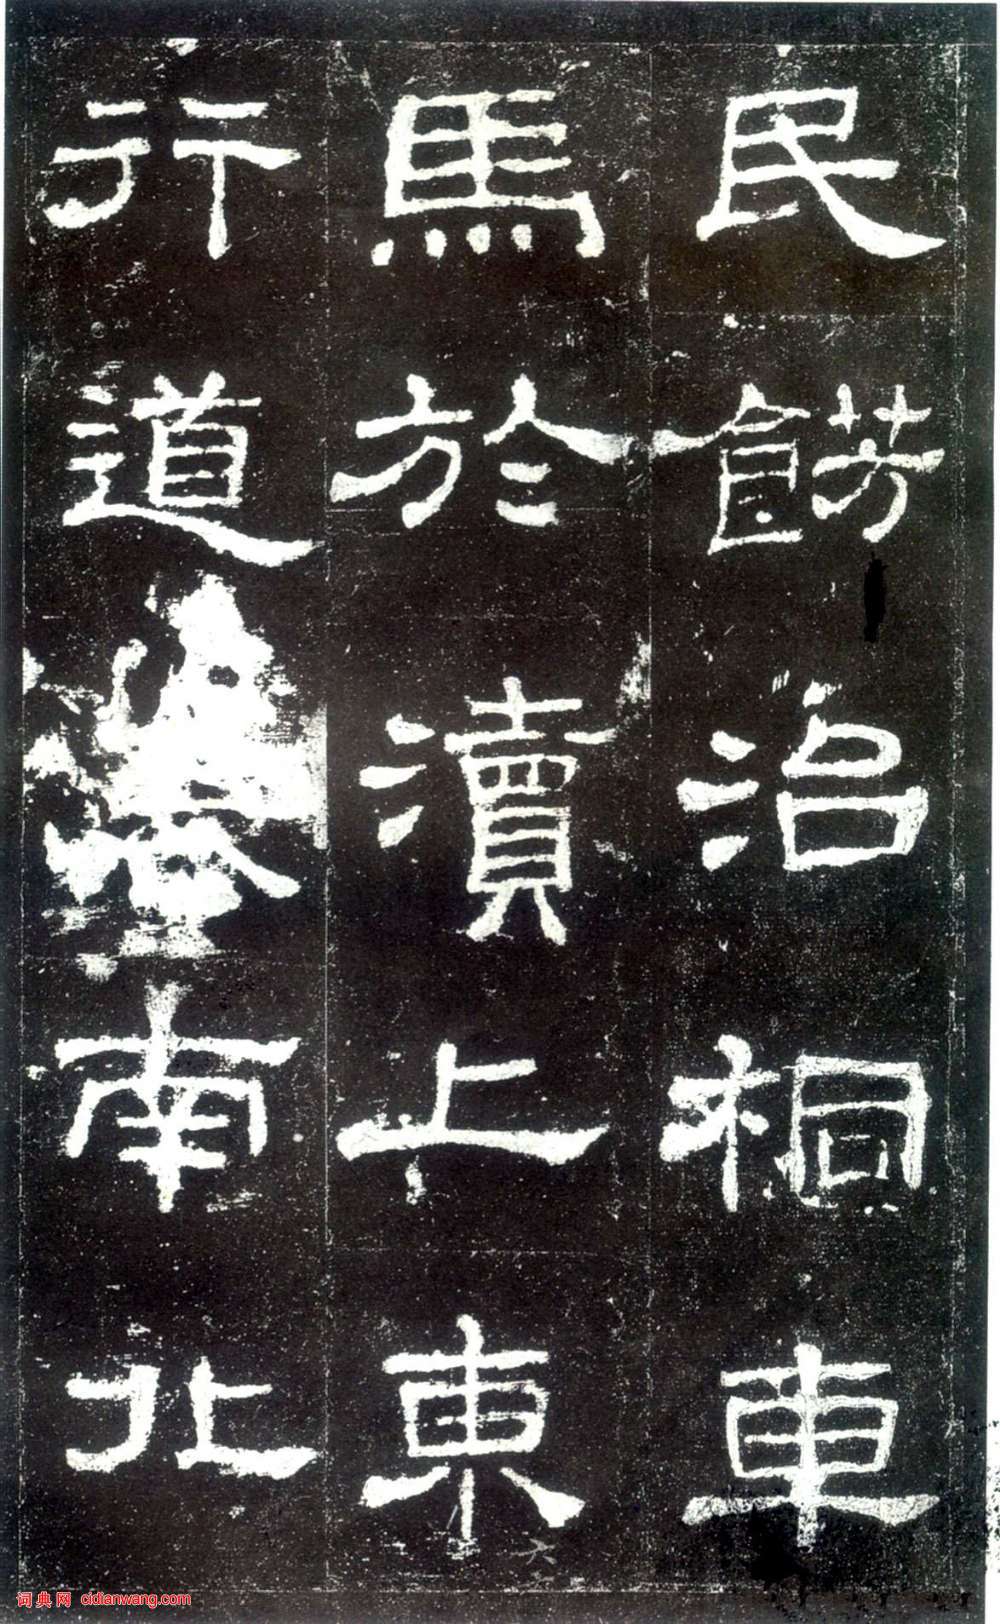 民餝治桐車
馬於瀆上東
行道南北
词典网 cidianwang.com